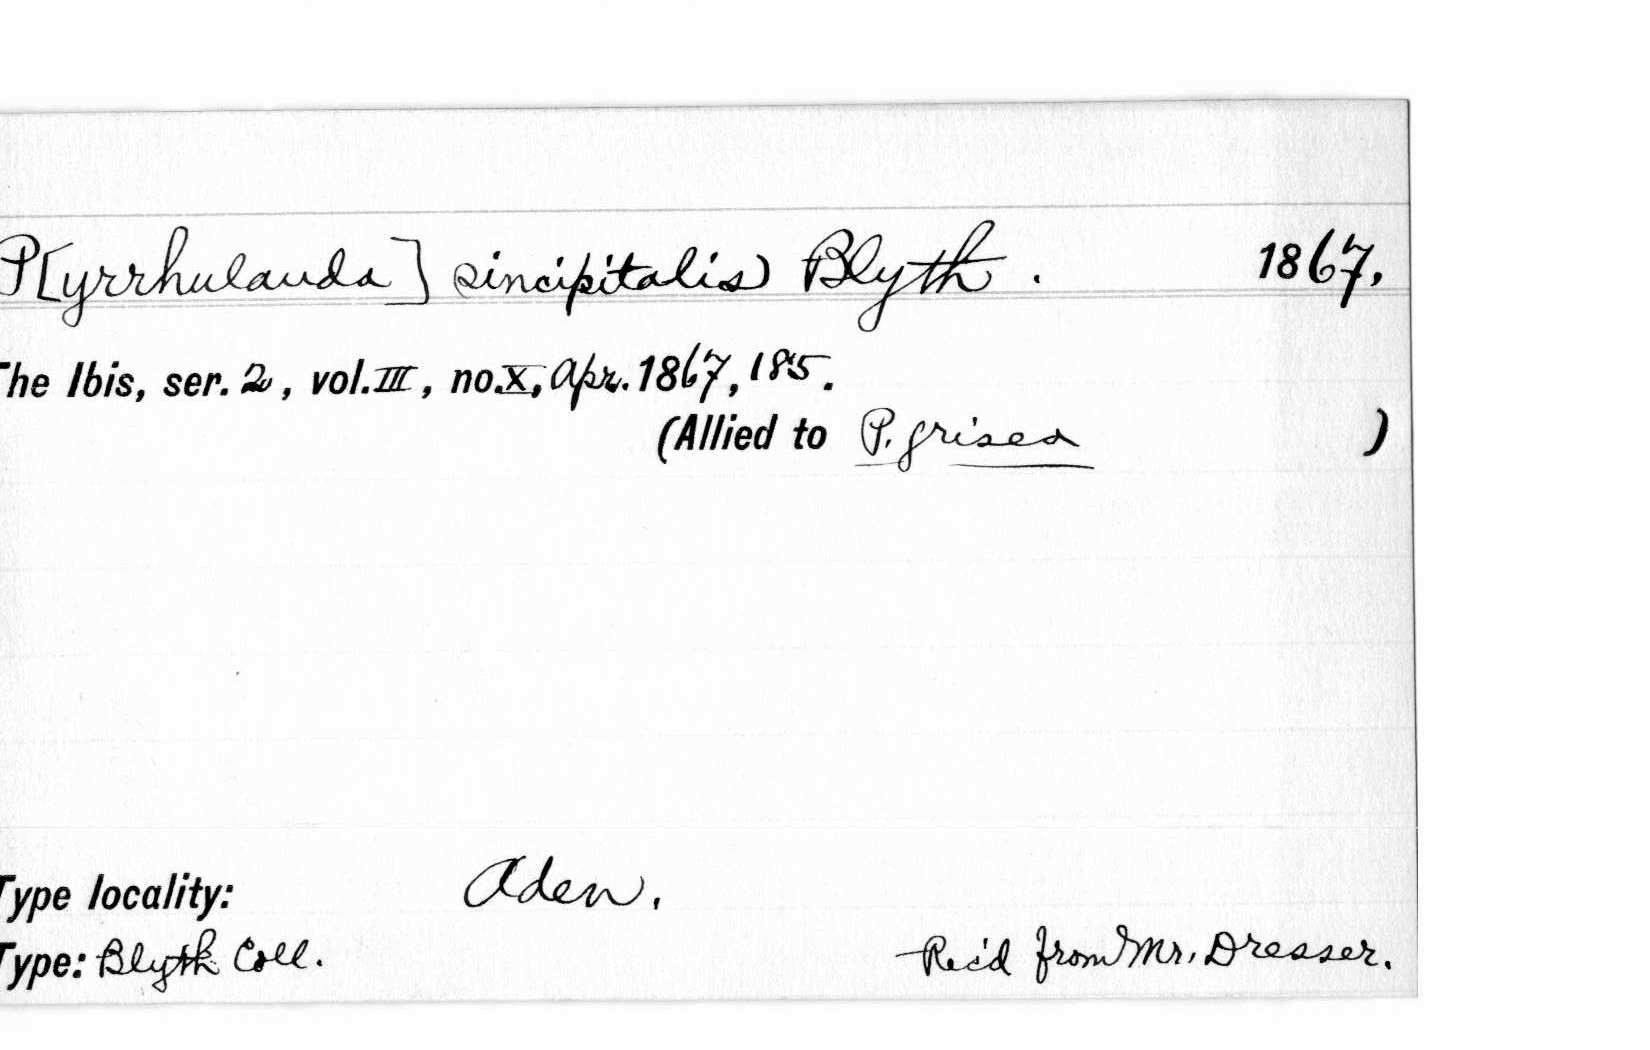 P[yrrhulauda] sincipitalis Blyth. 1867,
The Ibis, ser. 2, vol. III, no. X, Apr. 1867, 185.
(Allied to P. grisea )
Type locality: Aden.
Type: Blyth Coll. Rec'd from Mr. Dresser.